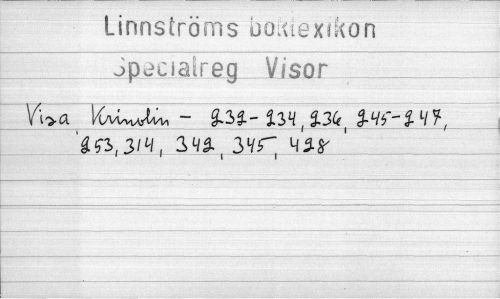 Linnströms boklexikon
Specialreg Visor
Visa Krinolin - 232-234, 236, 245-247,
253, 314, 342, 345, 428